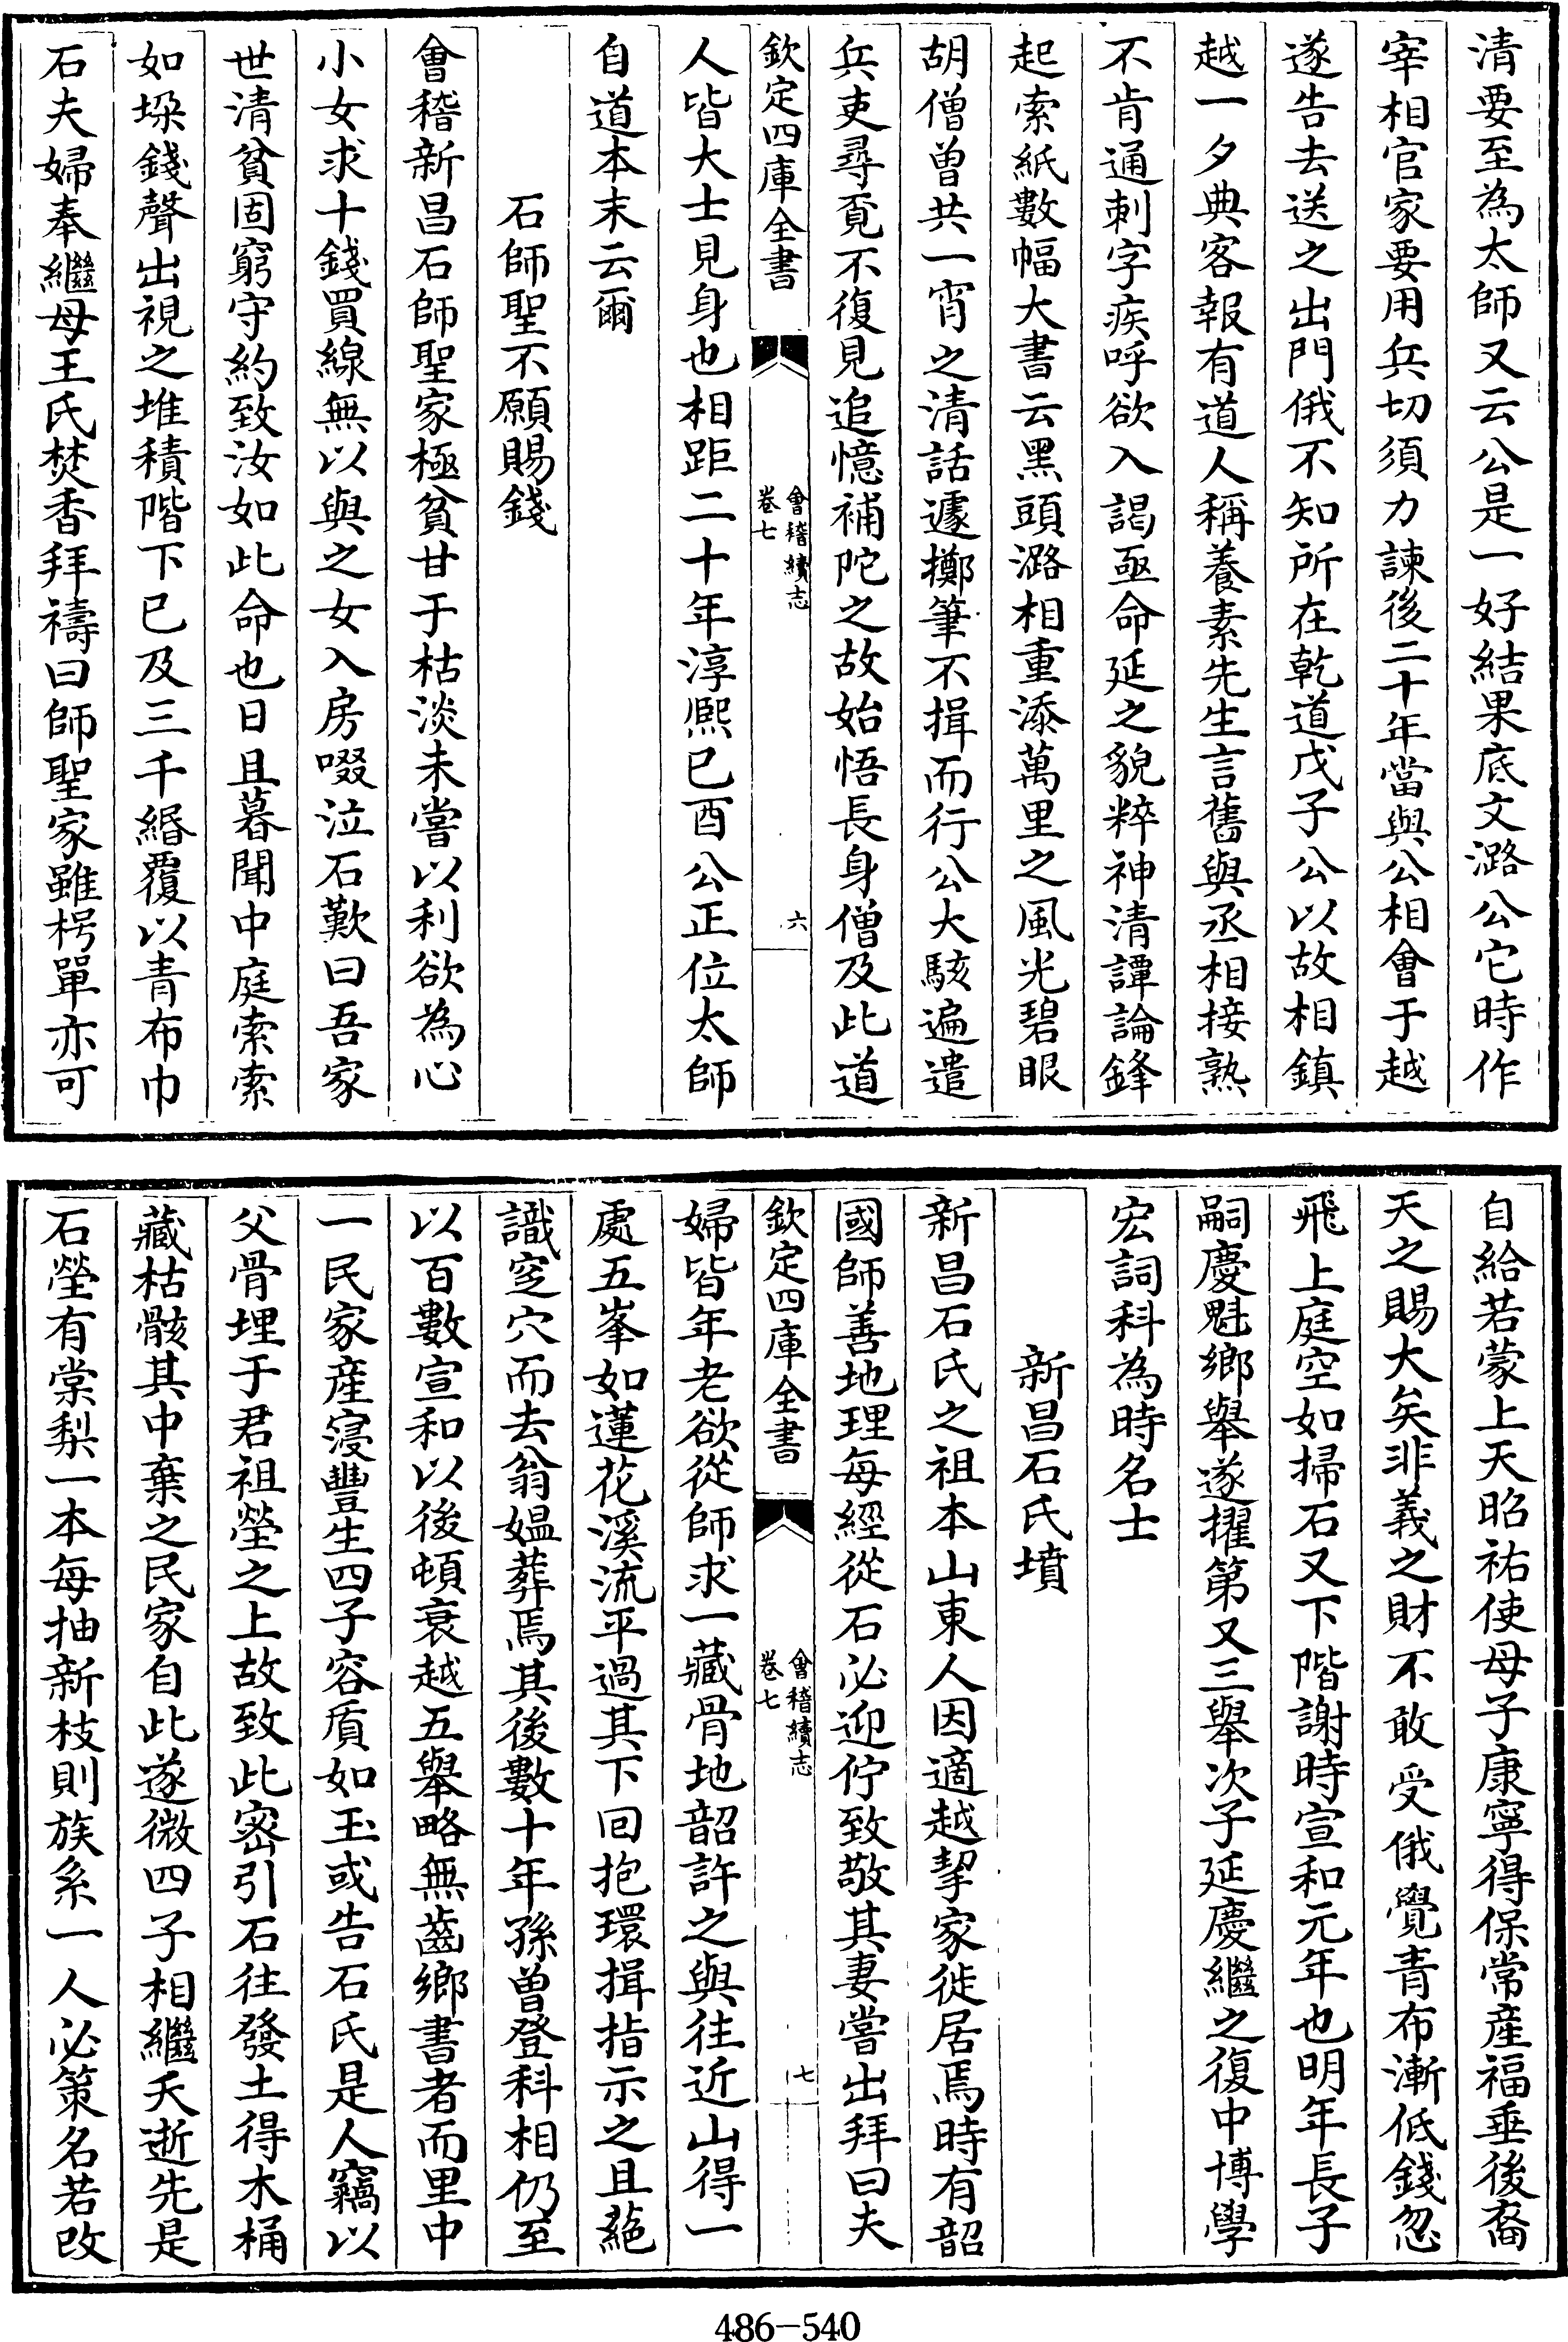 清要至為太師又云公是一好結果底文潞公它時作
宰相官家要用兵切須力諫後二十年當與公相會于越
遂告去送之出門俄不知所在乾道戊子公以故相鎮
越一夕典客報有道人稱養素先生言舊與丞相接熟
不肯通刺字疾呼欲入謁亟命延之貌粹神清譚論鋒
起索紙數幅大書云黑頭潞相重添萬里之風光碧眼
胡僧曾共一宵之清話遽擲筆不揖而行公大駭遍遣
兵吏尋覔不復見追憶補陀之故始悟長身僧及此道
欽定四庫全書
會稽續志
卷七
六
人皆大士見身也相距二十年淳熈已酉公正位太師
自道本末云爾
石師聖不願賜錢
會稽新昌石師聖家極貧甘于枯淡未嘗以利欲為心
小女求十錢買線無以與之女入房啜泣石歎曰吾家
世清貧固窮守約致汝如此命也日且暮聞中庭索索
如垜錢聲出視之堆積階下已及三千緡覆以青布巾
石夫婦奉繼母王氏焚香拜禱曰師聖家雖枵單亦可
自給若蒙上天昭祐使母子康寧得保常産福垂後裔
天之賜大矣非義之財不敢受俄覺青布漸低錢忽
飛上庭空如掃石又下階謝時宣和元年也明年長子
嗣慶魁鄉舉遂擢第又三舉次子延慶繼之復中博學
宏詞科為時名士
新昌石氏墳
新昌石氏之祖本山東人因適越挈家徙居焉時有韶
國師善地理每經從石必迎佇致敬其妻嘗出拜曰夫
欽定四庫全書
會稽續志
卷七
七
婦皆年老欲從師求一藏骨地韶許之與往近山得一
處五峯如蓮花溪流平過其下回抱環揖指示之且蕝
識窆穴而去翁媼葬焉其後數十年孫曾登科相仍至
以百數宣和以後頓衰越五舉略無齒鄉書者而里中
一民家産寖豐生四子容質如玉或告石氏是人竊以
父骨埋于君祖塋之上故致此密引石往發土得木桶
藏枯骸其中棄之民家自此遂微四子相繼夭逝先是
石塋有棠梨一本每抽新枝則族系一人必策名若改
486-540